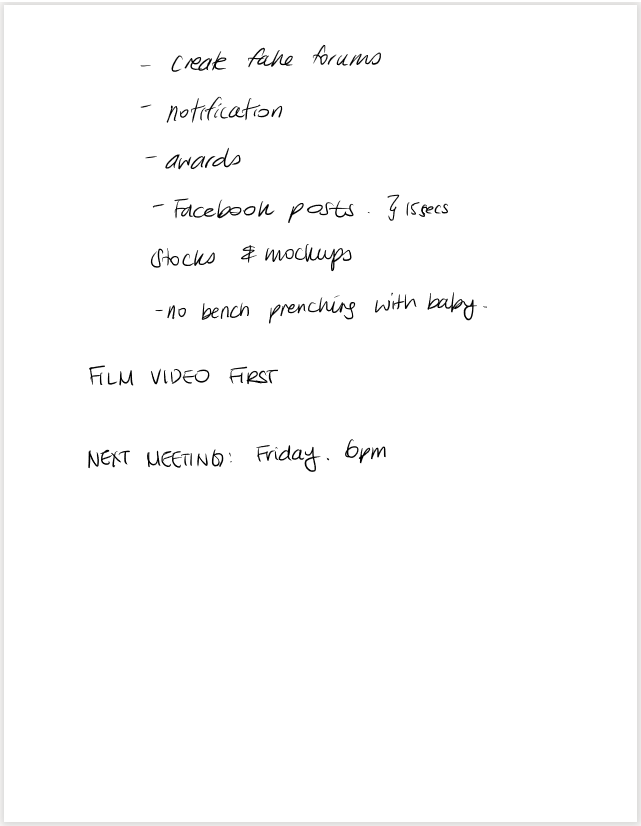 - create fake forums
- notification
- awards
- Facebook posts. } 15secs
Stocks & mockups
- no bench prenching with baby.
FILM VIDEO FIRST
NEXT MEETING: Friday. 6pm